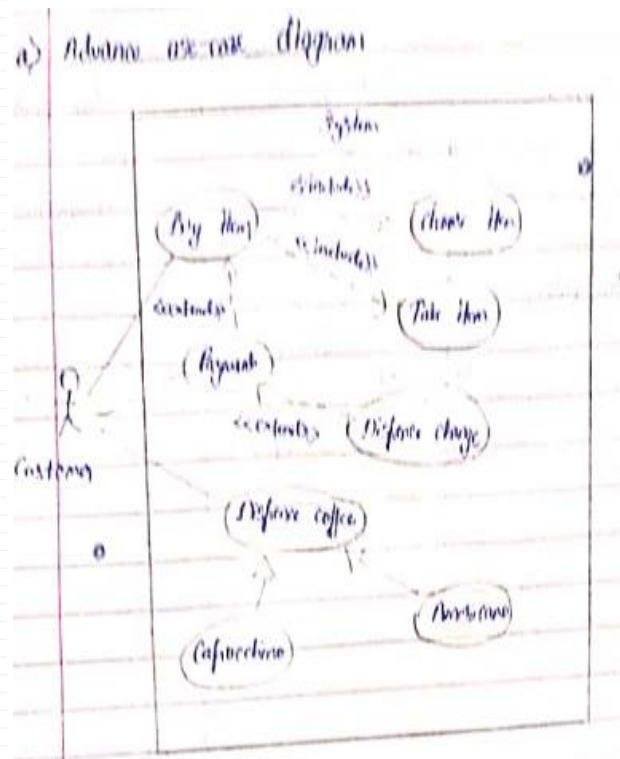 a) Advance use-case diagram
System
<<includes>>
Buy Item
Choose Item
<<includes>>
Take Item
<<extends>>
Payment
<<extends>>
Dispense change
Customer
Dispense coffee
Americano
Capucchino